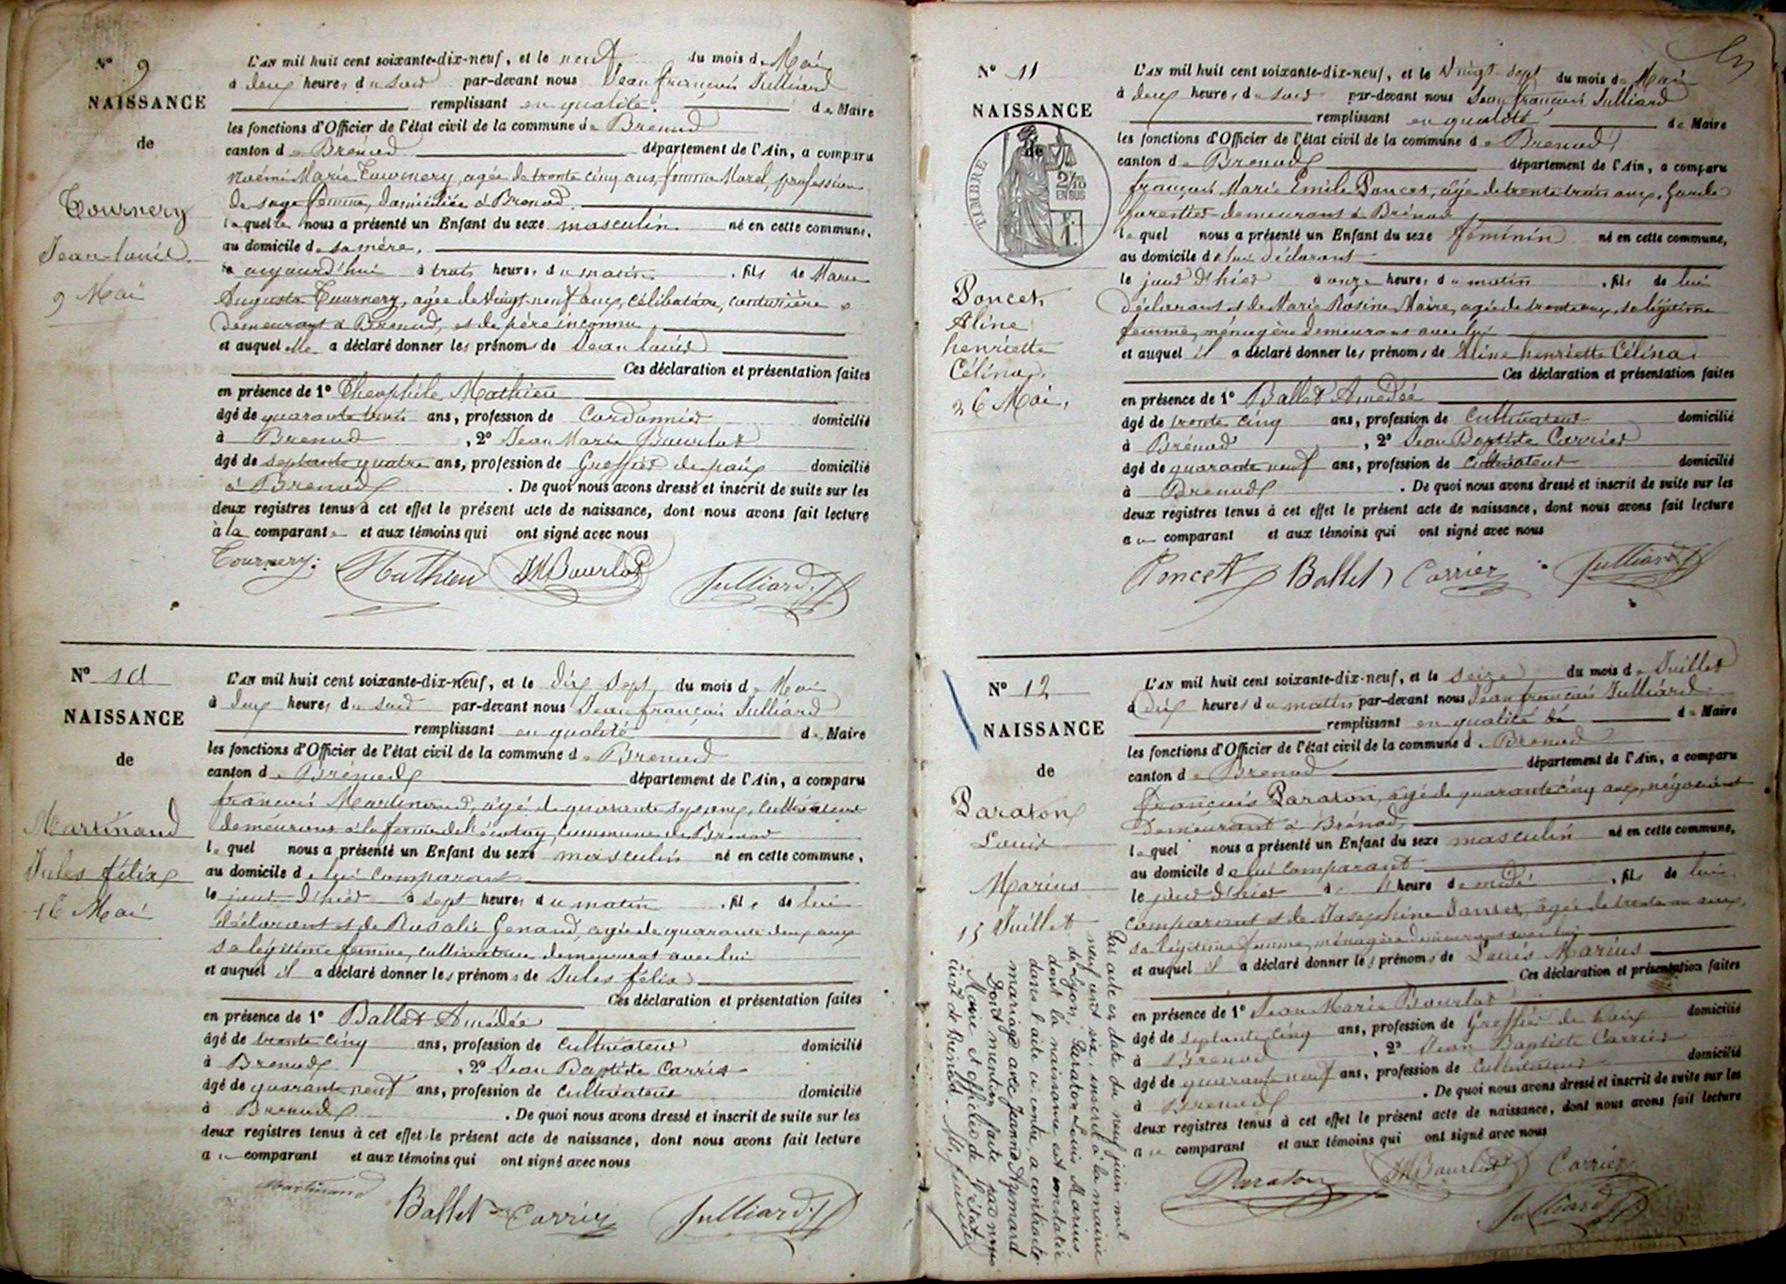 N° 9
NAISSANCE
de
Tournery
Jean Louis
9 Mai
L'AN mil huit cent soixante-dix-neuf, et le neuf du mois de Mai
à deux heures du soir par-devant nous Jean François Julliard
remplissant en qualité de Maire
les fonctions d'Officier de l'état civil de la commune de Brenod
canton de Brenod département de l'Ain, a comparu
Noémi Marie Tournery, agée de trente cinq ans, femme Morel, profession
de sage femme, domiciliée à Brenod.
laquelle nous a présenté un Enfant du sexe masculin né en cette commune,
au domicile de sa mère.
aujourd'hui à trois heures du matin, fils de Marie
Augusta Tournery, agée de vingt neuf ans, célibataire, couturière
demeurant à Brenod, et de père inconnu
et auquel elle a déclaré donner les prénoms de Jean Louis
Ces déclaration et présentation faites
en présence de 1° Théophile Mathieu
âgé de quarante trois ans, profession de Cordonnier domicilié
à Brenod, 2° Jean Marie Bourlot
âgé de septante quatre ans, profession de Greffier de paix domicilié
à Brenod. De quoi nous avons dressé et inscrit de suite sur les
deux registres tenus à cet effet le présent acte de naissance, dont nous avons fait lecture
à la comparante et aux témoins qui ont signé avec nous
Tournery. Mathieu JM Bourlot Julliard
N° 10
NAISSANCE
de
Martinand
Jules félix
16 Mai
L'AN mil huit cent soixante-dix-neuf, et le dix sept du mois de Mai
à deux heures du soir par-devant nous Jean françois Julliard
remplissant en qualité de Maire
les fonctions d'Officier de l'état civil de la commune de Brenod
canton de Brénod département de l'Ain, a comparu
françois Martinand, agé de quarante six ans, cultivateur
demeurant à la ferme de commune de Brenod
lequel nous a présenté un Enfant du sexe masculin né en cette commune,
au domicile de lui comparant
le jour d'hier à sept heures du matin, fils de lui
déclarant et de Rosalie Genand, agée de quarante deux ans
sa légitime femme, cultivatrice demeurant avec lui
et auquel il a déclaré donner les prénoms de Jules félix
Ces déclaration et présentation faites
en présence de 1° Ballet Amédée
âgé de trente cinq ans, profession de cultivateur domicilié
à Brenod, 2° Jean Baptiste Carrier
âgé de quarante neuf ans, profession de cultivateur domicilié
à Brenod. De quoi nous avons dressé et inscrit de suite sur les
deux registres tenus à cet effet le présent acte de naissance, dont nous avons fait lecture
au comparant et aux témoins qui ont signé avec nous
Martinand Ballet Carrier Julliard
N° 11
NAISSANCE
de
TIMBRE
2/10
EN SUS
Poncet
Aline
henriette
Célina
26 Mai
L'AN mil huit cent soixante-dix-neuf, et le vingt sept du mois de Mai
à deux heures du soir par-devant nous Jean françois Julliard
remplissant en qualité de Maire
les fonctions d'Officier de l'état civil de la commune de Brenod
canton de Brenod département de l'Ain, a comparu
françois Marie Emile Poncet, âgé de trente trois ans, Garde
forestier demeurant à Brénod
lequel nous a présenté un Enfant du sexe féminin né en cette commune,
au domicile de lui déclarant
le jour d'hier à onze heures du matin, fils de lui
déclarant et de Marie Rosine Maire, agée de trente ans, sa légitime
femme, ménagère demeurant avec lui
et auquel il a déclaré donner les prénoms de Aline henriette Célina
Ces déclaration et présentation faites
en présence de 1° Ballet Amédée
âgé de trente cinq ans, profession de Cultivateur domicilié
à Brénod, 2° Jean Baptiste Carrier
âgé de quarante neuf ans, profession de cultivateur domicilié
à Brenod. De quoi nous avons dressé et inscrit de suite sur les
deux registres tenus à cet effet le présent acte de naissance, dont nous avons fait lecture
au comparant et aux témoins qui ont signé avec nous
Poncet Ballet Carrier Julliard
N° 12
NAISSANCE
de
Paraton
Louis
Marius
15 Juillet
L'AN mil huit cent soixante-dix-neuf, et le seize du mois de Juillet
à dix heures du matin par-devant nous Jean françois Julliard
remplissant en qualité de de Maire
les fonctions d'Officier de l'état civil de la commune de Brenod
canton de Brenod département de l'Ain, a comparu
François Paraton, agé de quarante cinq ans, négociant
demeurant à Brénod
lequel nous a présenté un Enfant du sexe masculin né en cette commune,
au domicile de lui comparant
le jour d'hier à heure de midi, fils de lui
comparant et de Josephine agée de trente un ans,
sa légitime femme, ménagère demeurant avec lui
et auquel il a déclaré donner les prénoms de Louis Marius
Ces déclaration et présentation faites
en présence de 1° Jean Marie Bourlot
âgé de septante cinq ans, profession de Greffier de paix domicilié
à Brenod, 2° Jean Baptiste Carrier
âgé de quarante neuf ans, profession de cultivateur domicilié
à Brenod. De quoi nous avons dressé et inscrit de suite sur les
deux registres tenus à cet effet le présent acte de naissance, dont nous avons fait lecture
au comparant et aux témoins qui ont signé avec nous
Paraton JM Bourlot Carrier
Julliard
Par acte en date du neuf juin mil
neuf cent six, inscrit à la mairie
de Lyon, Paraton Louis Marius,
dont la naissance est constatée
dans l'acte ci contre a contracté
mariage avec Jeanne Aymard
Dont mention faite par nous
Maire et officier de l'état
civil de Brénod.